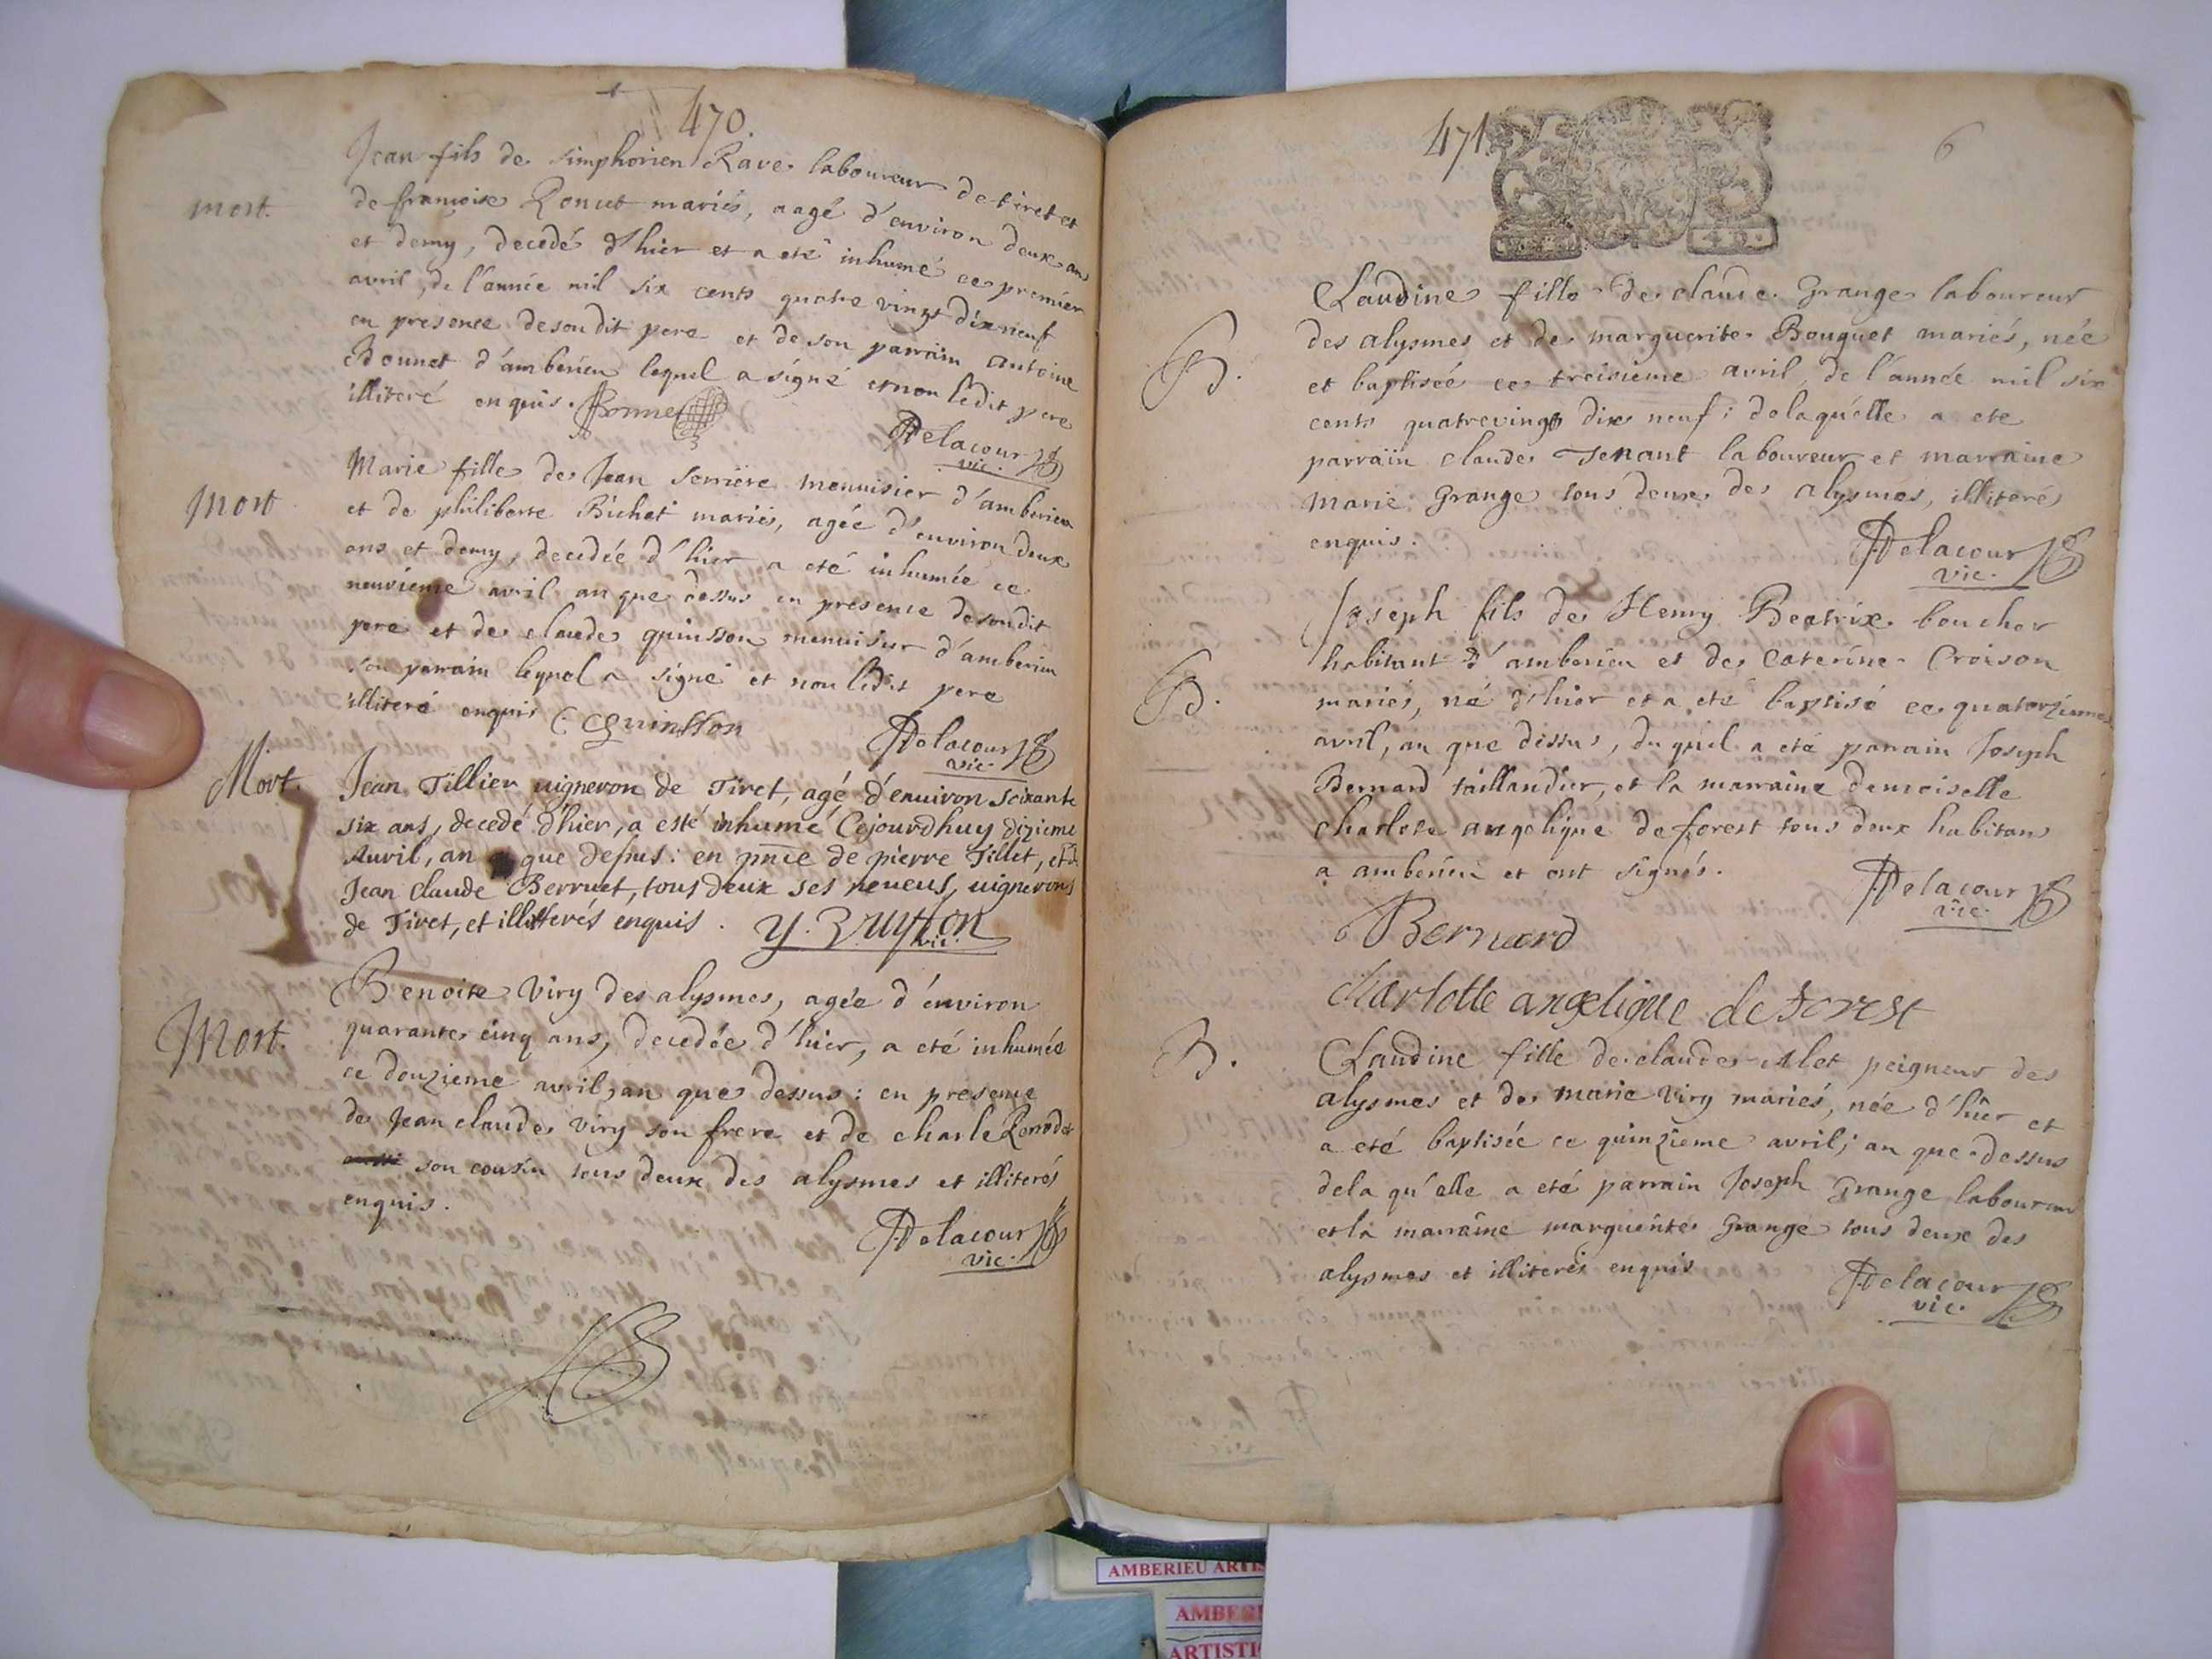 470.
Jean fils de simphorien Rave laboureur de tiret et
mort.
de francoise Ronut mariés, aagé d'environ deux ans
et demy, decedé d'hier et a eté inhumé ce premier
avril, de l'année mil six cents quatre vingt dix neuf
en presence de son dit pere et de son parrain antoine
Bonnet d'amberieu lequel a signé et non ledit pere
illiteré enquis. Bonnet
Delacour
vic.
Marie fille de Jean serriere menuisier d'amberieu
mort
et de philiberte Bichet mariés, agée d'environ deux
ans et demy, decedée d'hier a eté inhumée ce
neuvieme avril an que dessus en presence de son dit
pere et de claude quinsson menuisier d'amberieu
son parrain lequel a signé et non ledit pere
illiteré enquis C. Quinsson
Delacour
vic.
Mort.
Jean Tillier vigneron de Tiret, agé d'enuiron soixante
six ans, decedé d'hier, a esté inhumé Cejourdhuy dizieme
Auril, an que depus: en pnce de pierre Tillet, et de
Jean claude Berruet, tous deux ses neueus, uignerons
de Tiret, et illitterés enquis.
vic.
Benoite Viry des alysmes, agée d'environ
Mort.
quarante cinq ans, decedée d'hier, a eté inhumée
ce douzieme avril, an que dessus: en presence
de Jean claude Viry son frere et de charle
son cousin tous deux des alysmes et illiterés
enquis.
Delacour
vic.
471.
6
Claudine fille de claude Grange laboureur
des alysmes et de marguerite Bouquet mariés, née
B.
et baptisée ce troisieme avril, de l'année mil six
cents quatrevingt dix neuf; de laquelle a ete
parrain claude Tenant laboureur et marraine
Marie Grange tous deux des alysmes, illiterés
enquis.
Delacour
vic.
Joseph fils de Henry Beatrix boucher
habitant d'amberieu et de Caterine Croison
B.
mariés, né d'hier et a eté baptisé ce quatorzieme
avril, an que dessus, du quel a eté parrain Joseph
Bernard taillandier, et la marraine demoiselle
charlote angelique de forest tous deux habitans
a amberieu et ont signés.
Delacour
vic.
Bernard
charlotte angelique de forest
B.
Claudine fille de claude Alet peigneur des
alysmes et de marie Viry mariés, née d'hier et
a eté baptisée ce quinzieme avril; an que dessus
de la qu'elle a eté parrain Joseph Grange laboureur
et la marraine marguerite Grange tous deux des
alysmes et illiterés enquis
Delacour
vic.
AMBERIEU ARTIS
AMBERI
ARTISTI